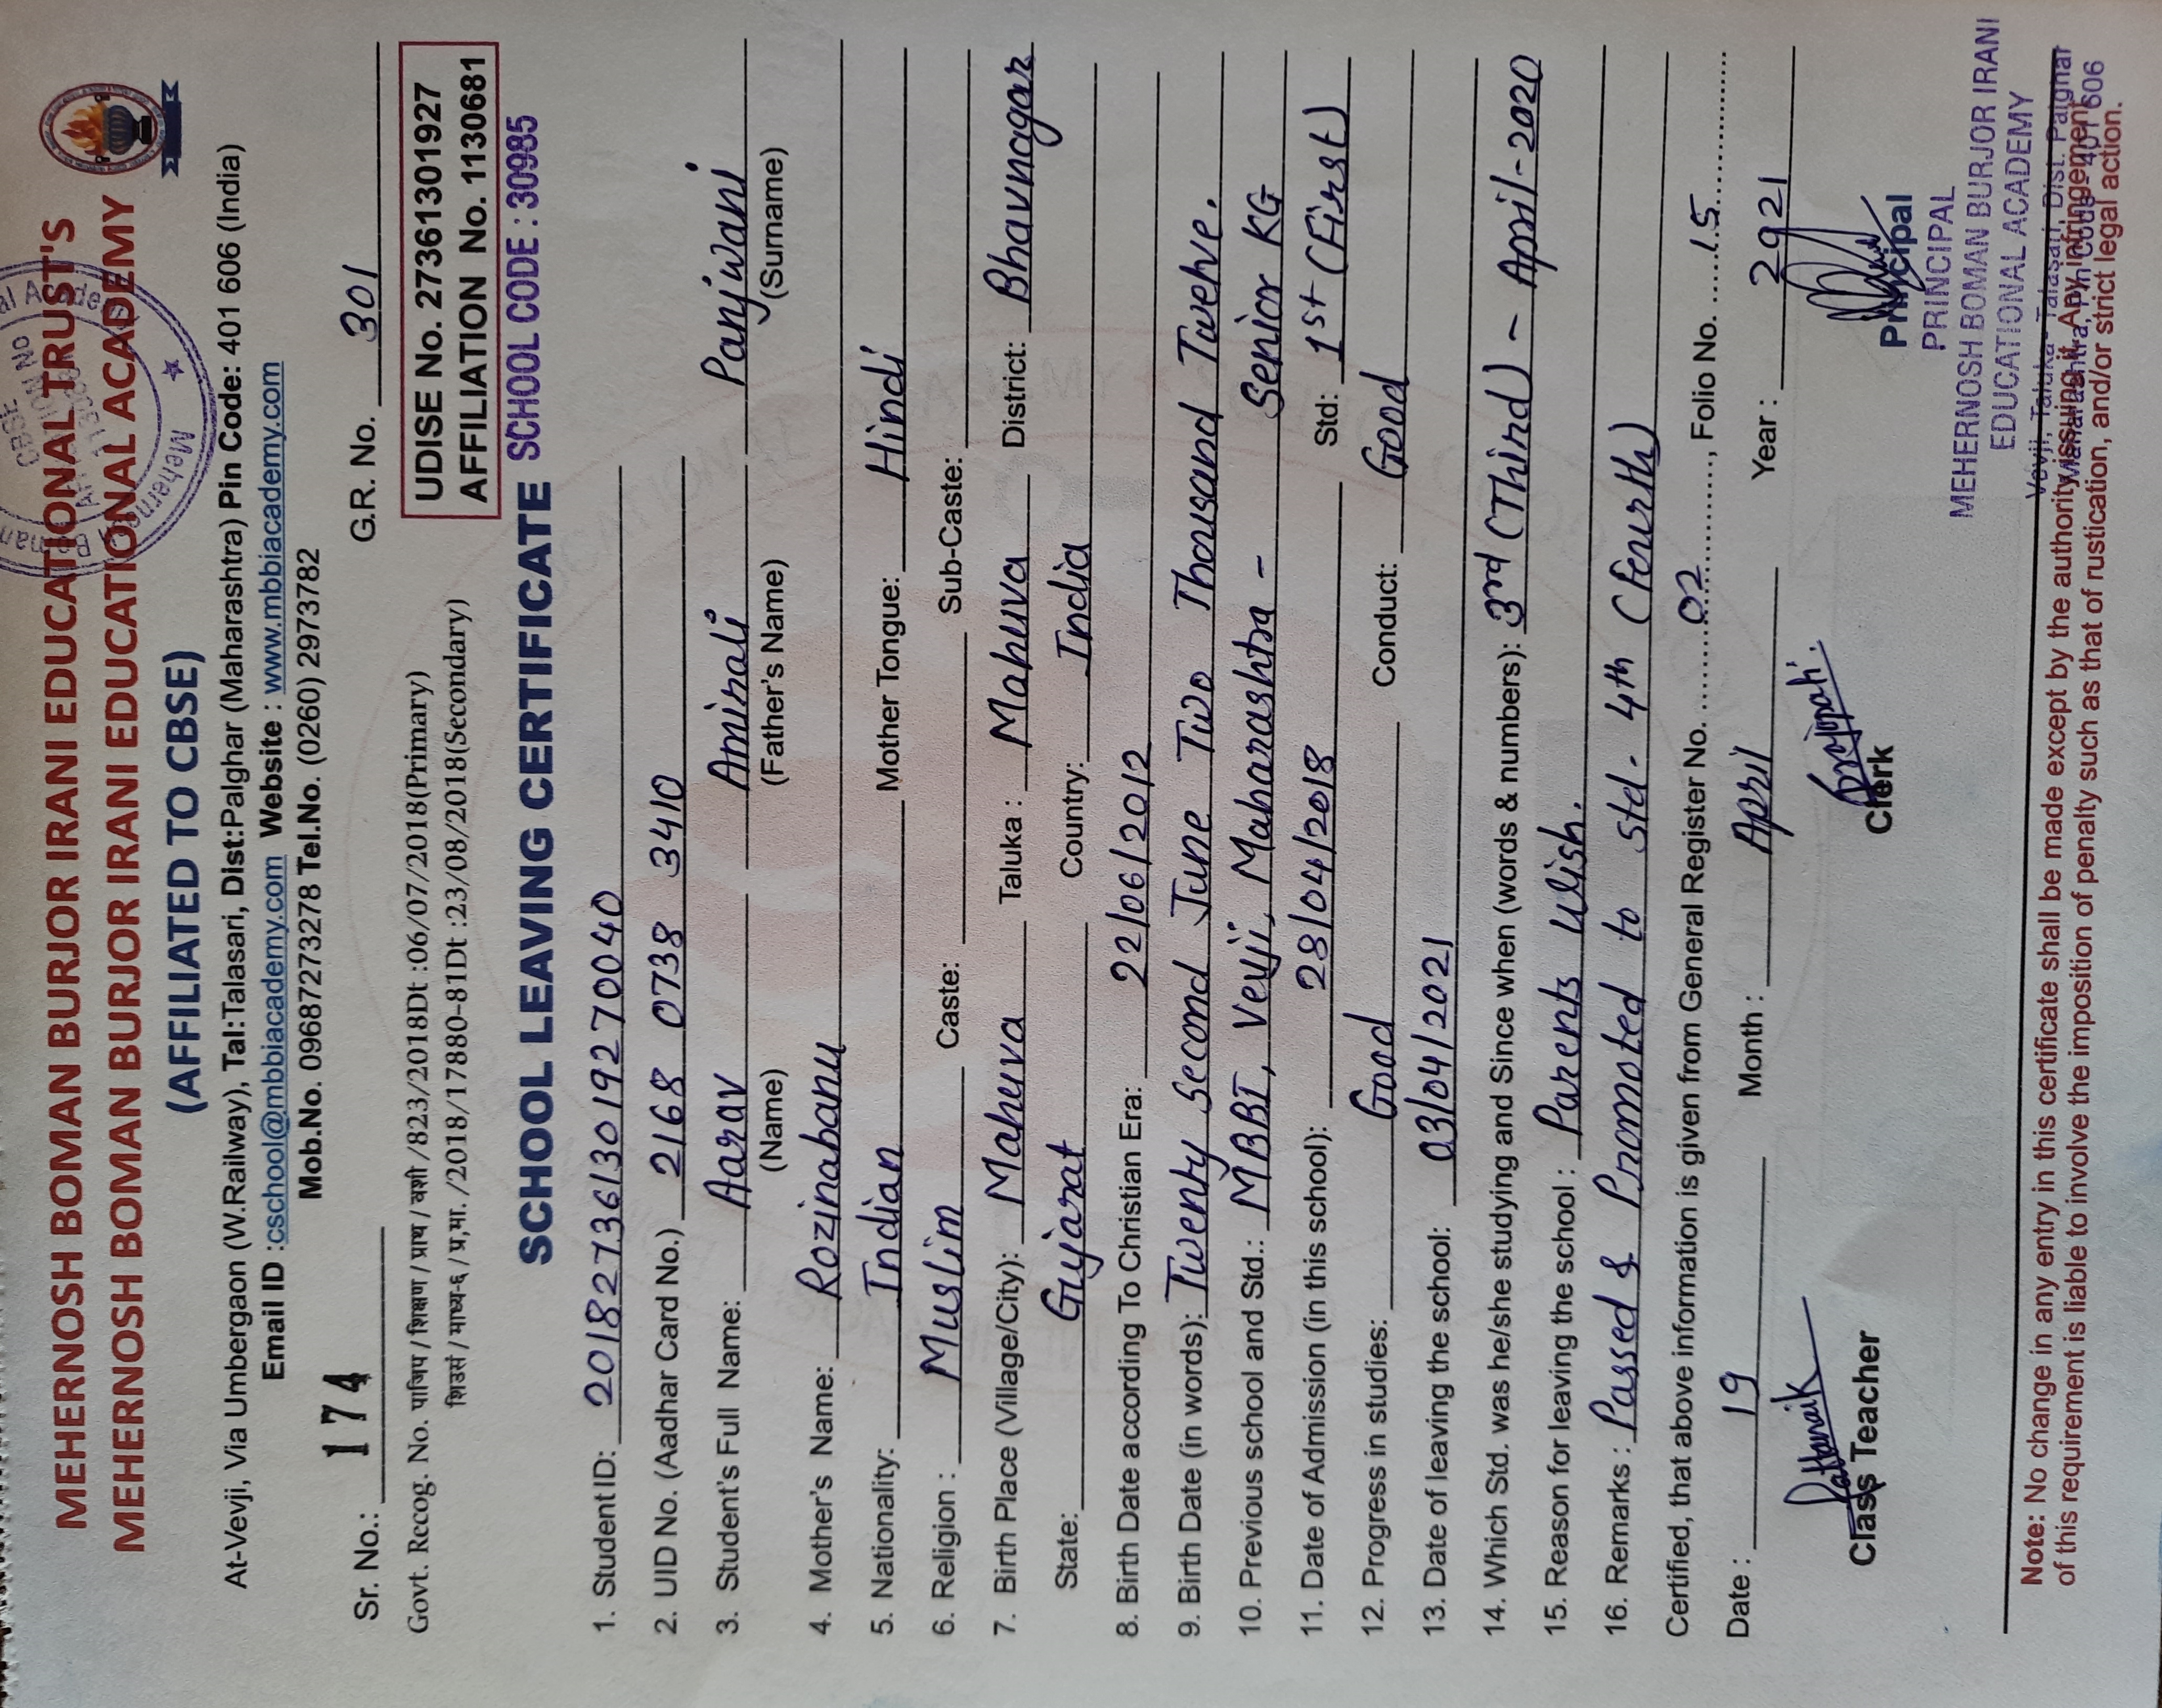 MEHERNOSH BOMAN BURJOR IRANI EDUCATIONAL TRUST'S
MEHERNOSH BOMAN BURJOR IRANI EDUCATIONAL ACADEMY
(AFFILIATED TO CBSE)
At-Vevji, Via Umbergaon (W.Railway), Tal:Talasari, Dist:Palghar (Maharashtra) Pin Code: 401 606 (India)
Email ID :cschool@mbbiacademy.com Website : www.mbbiacademy.com
Mob.No. 09687273278 Tel.No. (0260) 2973782
Sr. No.: 174 G.R. No. 301
Govt. Recog. No. पाजिप / शिक्षण / प्राथ / वशी /823/2018Dt :06/07/2018(Primary)
शिउसं / माध्य-६ / प्र,मा. /2018/17880-81Dt :23/08/2018(Secondary)
UDISE No. 27361301927
AFFILIATION No. 1130681
SCHOOL LEAVING CERTIFICATE SCHOOL CODE : 30985
1. Student ID: 2018273613019270040
2. UID No. (Aadhar Card No.) 2168 0738 3410
3. Student's Full Name: Aarav Aminali Panjwani
(Name) (Father's Name) (Surname)
4. Mother's Name: Rozinabanu
5. Nationality: Indian Mother Tongue: Hindi
6. Religion : Muslim Caste: Sub-Caste:
7. Birth Place (Village/City): Mahuva Taluka : Mahuva District: Bhavnagar
State: Gujarat Country: India
8. Birth Date according To Christian Era: 22/06/2012
9. Birth Date (in words): Twenty Second June Two Thousand Twelve.
10. Previous school and Std.: MBBI, Vevji, Maharashtra - Senior KG
11. Date of Admission (in this school): 28/04/2018 Std: 1st (First)
12. Progress in studies: Good Conduct: Good
13. Date of leaving the school: 03/04/2021
14. Which Std. was he/she studying and Since when (words & numbers): 3rd (Third) - April-2020
15. Reason for leaving the school : Parents Wish.
16. Remarks : Passed & Promoted to Std- 4th (Fourth)
Certified, that above information is given from General Register No. 02, Folio No. 15
Date : 19 Month : April Year : 2021
Class Teacher Clerk Principal
PRINCIPAL
MEHERNOSH BOMAN BURJOR IRANI
EDUCATIONAL ACADEMY
Vevji, Taluka - Talasari, Dist. Palghar
Maharashtra, Pin Code - 401 606
Note: No change in any entry in this certificate shall be made except by the authority issuing it. Any infringement
of this requirement is liable to involve the imposition of penalty such as that of rustication, and/or strict legal action.